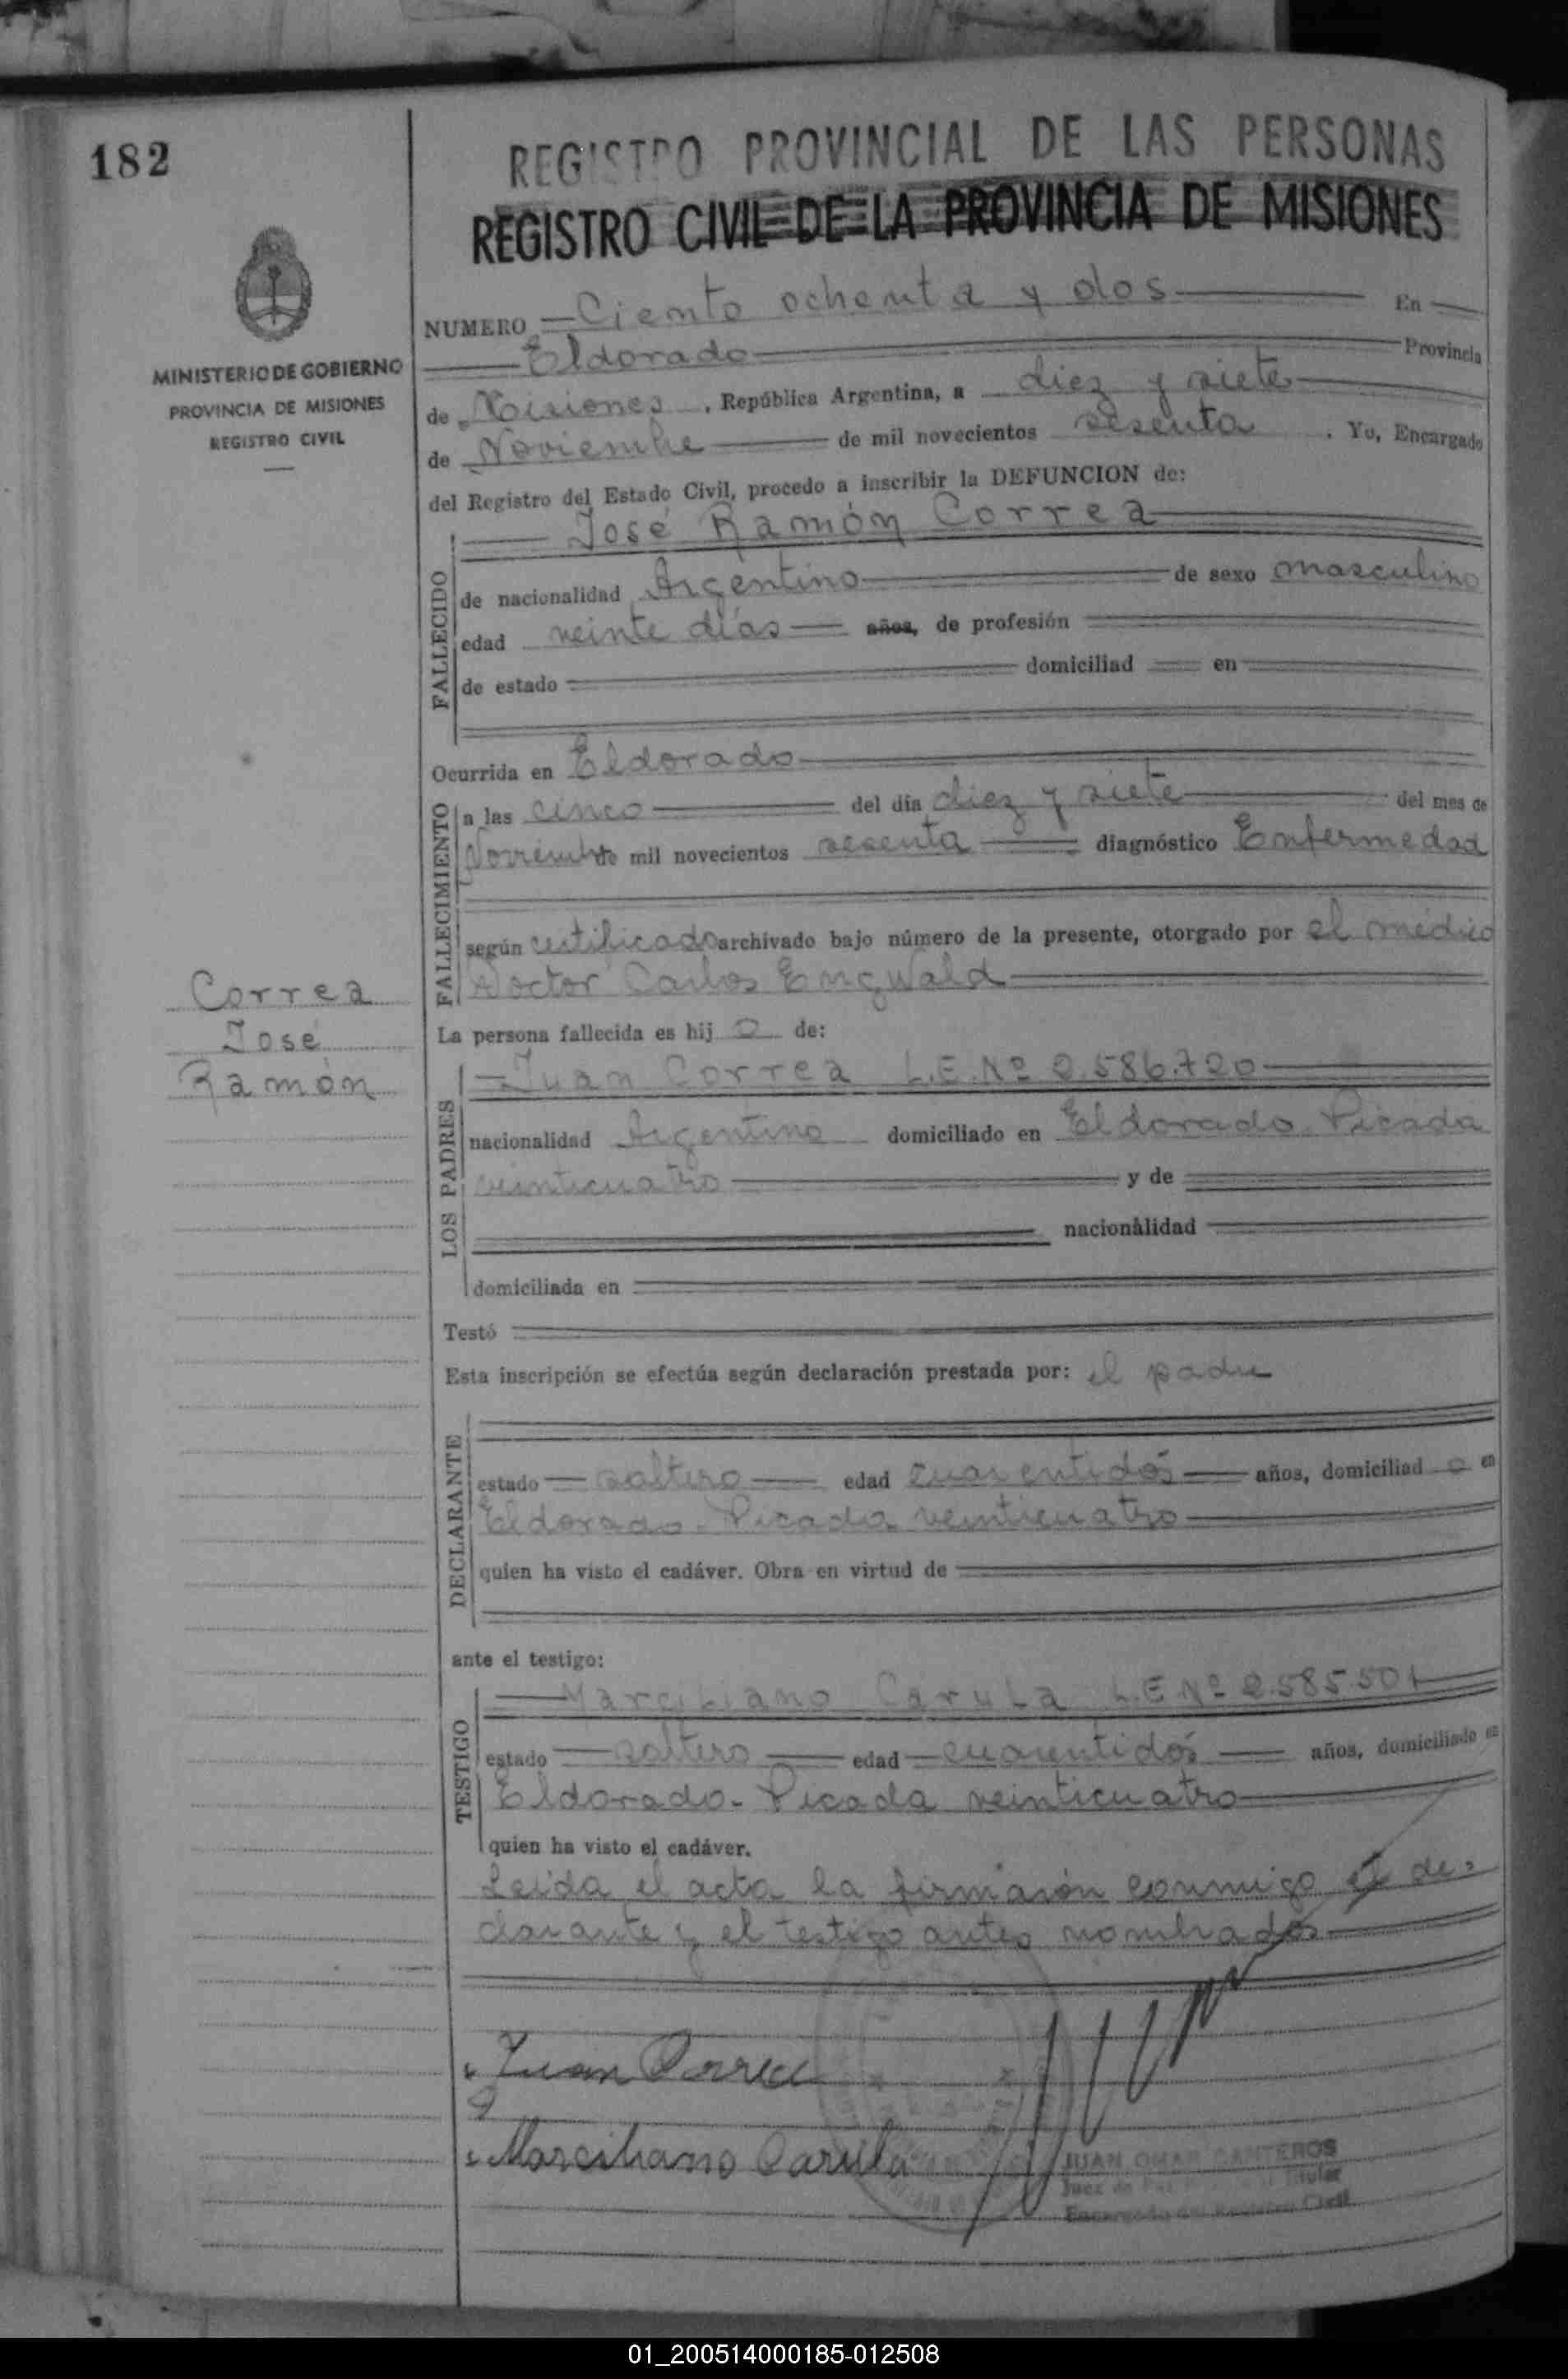 182
REGISTRO PROVINCIAL DE LAS PERSONAS
REGISTRO CIVIL DE LA PROVINCIA DE MISIONES
MINISTERIO DE GOBIERNO
PROVINCIA DE MISIONES
REGISTRO CIVIL
NUMERO Ciento ochenta y dos En
Eldorado Provincia
de Misiones, República Argentina, a diez y siete
de Noviembre de mil novecientos sesenta. Yo, Encargado
del Registro del Estado Civil, procedo a inscribir la DEFUNCION de:
FALLECIDO
José Ramón Correa
de nacionalidad Argentino de sexo masculino
edad veinte días años, de profesión
de estado domiciliad en
Ocurrida en Eldorado
FALLECIMIENTO
a las cinco del día diez y siete del mes de
Noviembre de mil novecientos sesenta diagnóstico Enfermedad
según certificado archivado bajo número de la presente, otorgado por el médico
Doctor Carlos Engwald
Correa
José
Ramón
La persona fallecida es hijo de:
LOS PADRES
Juan Correa L.E.Nº 2.586.720
nacionalidad Argentino domiciliado en Eldorado-Picada
veinticuatro y de
nacionalidad
domiciliada en
Testó
Esta inscripción se efectúa según declaración prestada por: el padre
DECLARANTE
estado soltero edad cuarentidós años, domiciliado en
Eldorado-Picada veinticuatro
quien ha visto el cadáver. Obra en virtud de
ante el testigo:
TESTIGO
Marciliano Carula L.E.Nº 2.585.501
estado soltero edad cuarentidós años, domiciliado en
Eldorado-Picada veinticuatro
quien ha visto el cadáver.
Leída el acta la firmarón conmigo el de=
clarante y el testigo antes nombrados
Juan Correa
Marciliano Carula
JUAN OMAR CANTEROS
Juez de Paz Titular
Encargado del Registro Civil
01_200514000185-012508